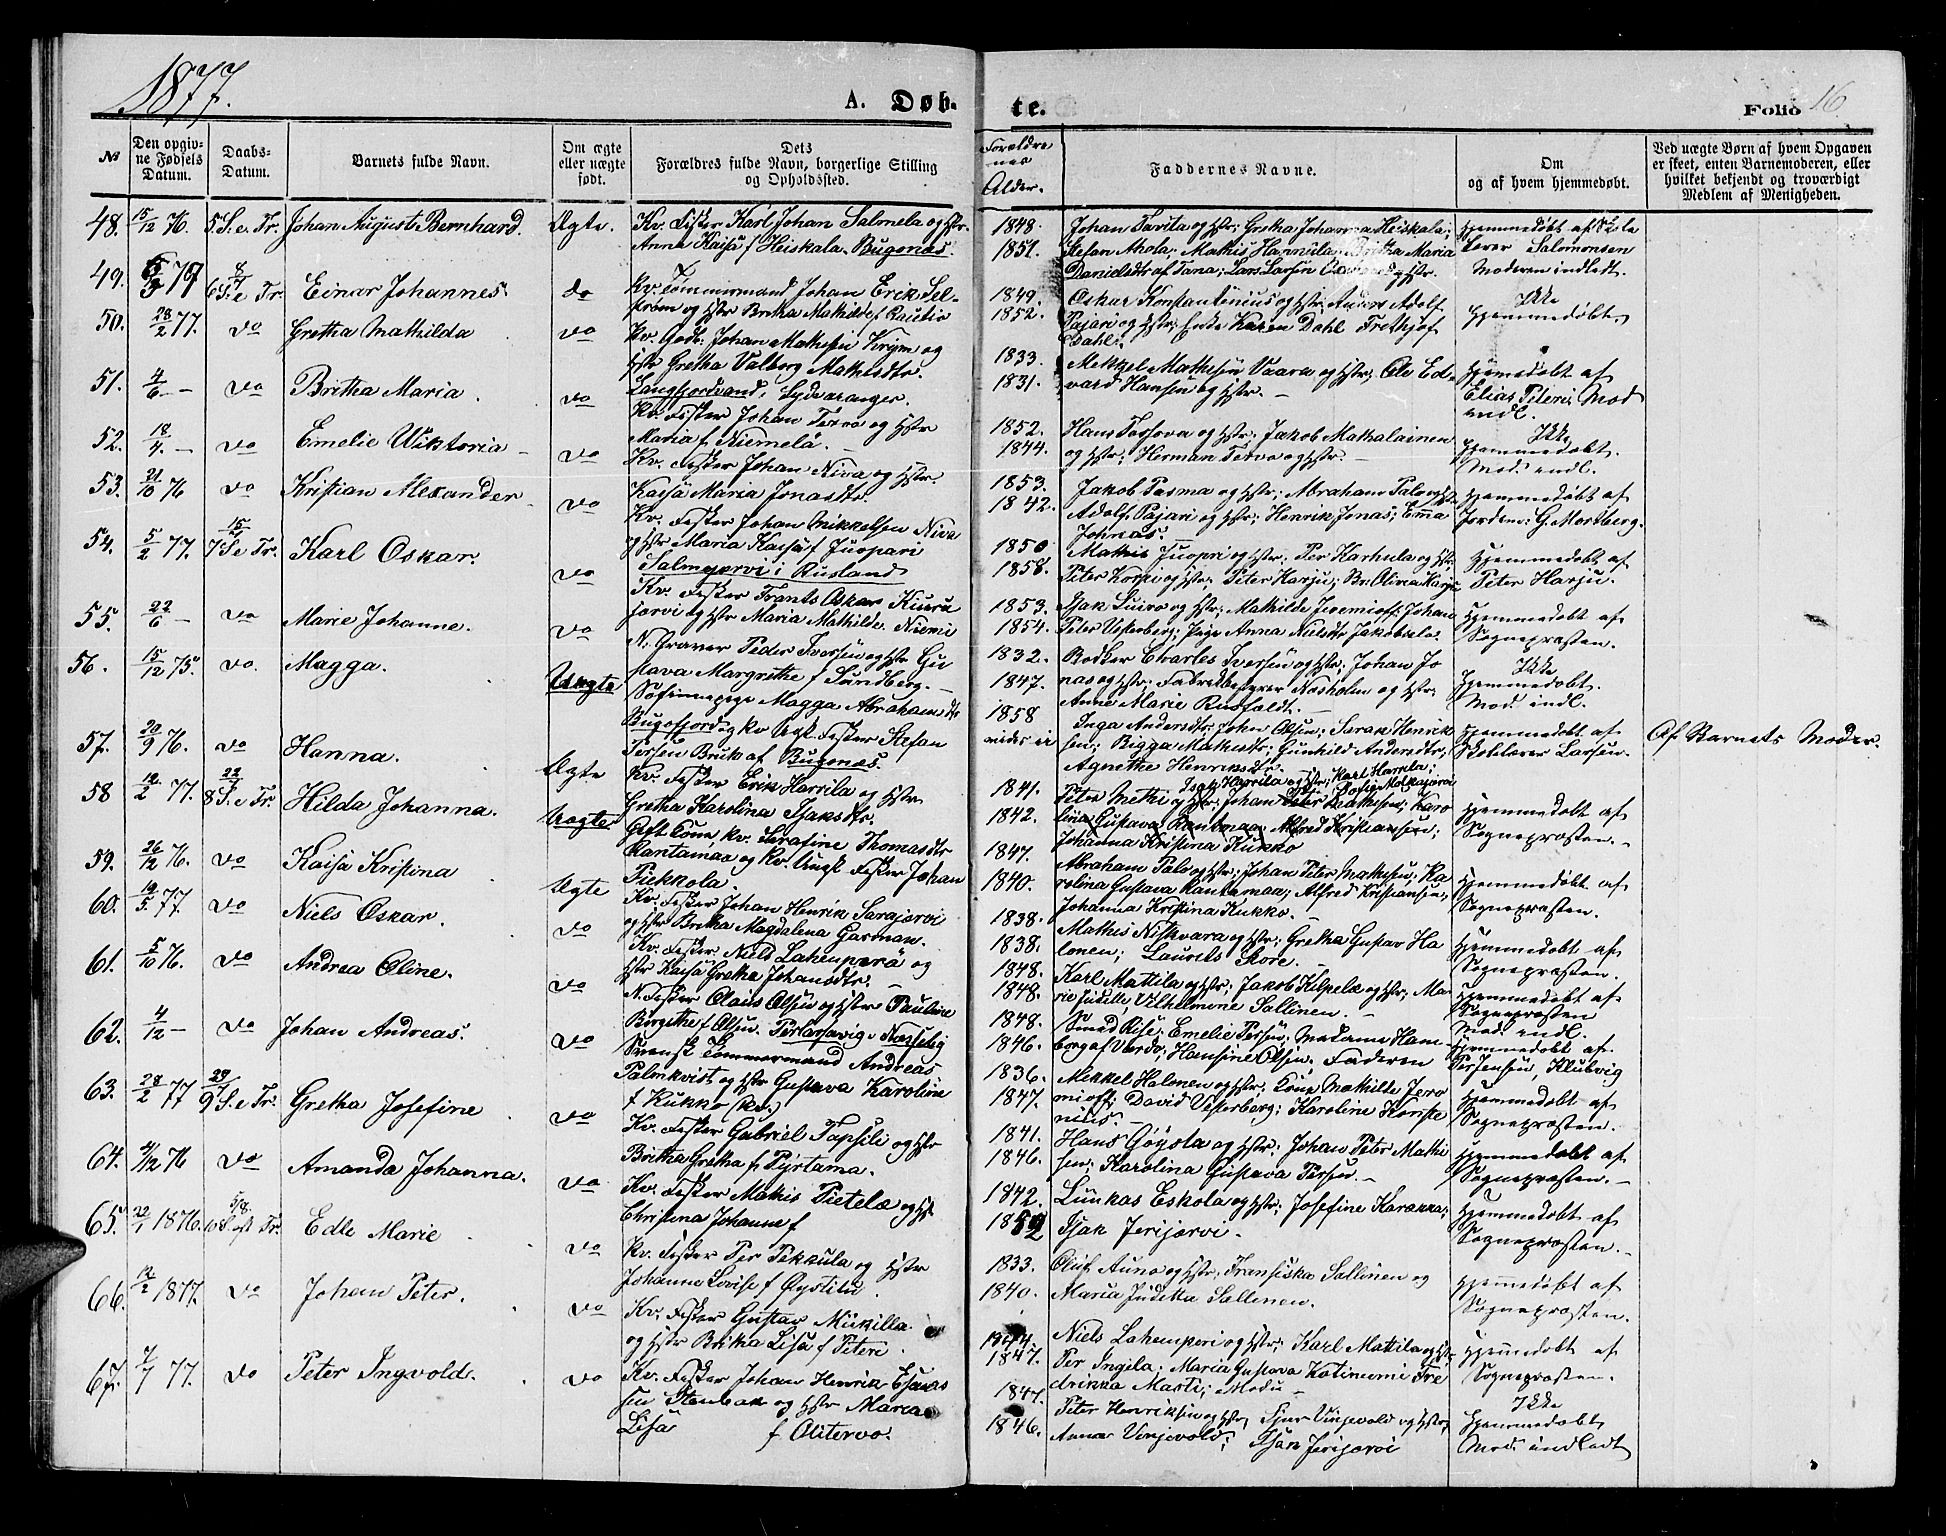 1877.
A. Døb-
te.
Folio 16
№
Den opgiv-
ne Fødsels
Datum.
Daabs-
Datum.
Barnets fulde Navn.
Om ægte
eller uægte
født.
Dets
Forældres fulde Navn, borgerlige Stilling
og Opholdssted.
Forældre
nes
Alder.
Faddernes Navne.
Om
og af hvem hjemmedøbt.
Ved uægte Børn af hvem Opgaven
er skeet, enten Barnemoderen, eller
hvilket bekjendt og troværdigt
Medlem af Menigheden.
48. 15/12 76. 5 S. e. Tr. Johan August Bernhard. Ægte.
Kv. Fisker Karl Johan Salmela og Hstr.
Anna Kaisa f Heiskala. Bugønæs.
1848.
1851.
Johan Savita og Hstr; Gretha Johanna Heiskala;
Stefan Ahola; Mathis Hannula; Britha Maria
Danielsdtr af Tana; Lars Larsen og Hstr.
Hjemmedøbt af Skole
lærer Salomonsen
Moderen indledt.
49. 77 8/7 6 S. e Tr. Einar Johannes. do
Kv. Tømmermand Johan Erik Sel-
strøm og Hstr Britha Mathilde f Rautio
1849.
1852.
Oskar Konstantinius og Hstr; Anders Adolf
Pajari og Hstr; Enke Karen Dahl Frethjof
Dahl.
Ikke
Hjemmedøbt.
50. 28/2 77. do Gretha Mathilda do
Kv. Gdb. Johan Mathisen Krym og
Hstr Gretha Valborg Mathisdtr.
Langfjordvand, Sydvaranger.
1833.
1831.
Mikkel Mathisen Vaara og Hstr; Ole Ed-
vard Hansen og Hstr.
Hjemedøbt af
Elias Piteri; Mod
indl.
51. 4/6 — do Britha Maria. do
Kv. Fisker Johan Terva og Hstr
Maria f Niemelä.
1852.
1844.
Hans Tossova og Hstr; Jakob Mathalainen
og Hstr; Herman Terva og Hstr.
Ikke
Hjemmedøbt.
Mod. indl.
52. 18/4. — do Emelie Wiktoria do
Kv. Fisker Johan Niva og Hstr.
Kaisa Maria Jonasdtr.
1853.
1842.
Jakob Pasma og Hstr; Abraham Palo og Hstr
Adolf Pajari og Hstr; Henrik Jonas; Emma
Johnas.
Hjemmedøbt af
Jordem: G. Mortberg.
53. 21/10 76 do Kristian Alexander do
Kv. Fisker Johan Mikkelsen Niva
og Hstr Maria Kaisa f Juopari
Salmejærvi i Rusland
1850
1858.
Mathis Juopri og Hstr; Per Karhula og Hstr;
Peter Korpi og Hstr; Peter Harju; Br. Olina Harju
Hjemmedøbt af
Peter Harju.
54. 5/2 77. 15/7 7 S. e Tr. Karl Oskar. do
Kv. Fisker Frants Oskar Kiuru
jærvi og Hstr Maria Mathilde Niemi
1853.
1854.
Isak Luiro og Hstr; Mathilde Jeremioff; Johan
Peter Vesterberg; Pige Anna Nielsdtr Jakobsela.
Hjemmedøbt af
Sognepræsten.
55. 22/6 — do Marie Johanne. do
N. Graver Peder Iversen og Hstr Gu
stava Margrethe f Sundberg.
1832.
1847.
Bødker Charles Iversen og Hstr; Johan Jo
nas og Hstr; Fabrikbestyrer Næsholm og Hstr;
Anne Marie Rusfeldt.
Ikke
Hjemmedøbt.
Mod. indl.
56. 15/12 75. do. Magga. Uægte
Søfinnepige Magga Abrahamsdtr
Bugøfjord og kv Ugk. Fisker Stefan
Persen Bruk af Bugønæs.
1858
Inga Andersdtr; John Olsen; Sarak Henrik
sen; Bigga Mathisdtr; Gunhild Andersdtr;
Agnethe Henriksdtr.
Hjemmedøbt af
Skolelærer Larsen.
Af Barnets Moder.
57. 20/9 76. do Hanna. Ægte
Kv. Fisker Erik Harrila og Hstr
Gretha Karolina Isaksdtr.
1841.
1842.
Isak Harrila og Hstr; Karl Harrila;
Peter Methi og Hstr; Johan Peter Mathisen; Karo
lina Gustava Rantamaa; Alfred Kristiansen;
Johanna Kristina Kukko
Hjemmedøbt af
Sognepræsten.
58 12/2 77. 22/7 8 S. e Tr. Hilda Johanna. Uægte
Gift Kone, kv. Serafine Thomasdtr
Rantamaa og kv. Ungk. Fisker Johan
Piekkola.
1847.
1840.
Abraham Palo og Hstr; Johan Peter Mathisen; Ka
rolina Gustava Rantamaa; Alfred Kristiansen;
Johanna Kristina Kukko.
Hjemmedøbt af
Sognepræsten.
59. 26/12 76. do Kaisa Kristina Ægte
Kv. Fisker Johan Henrik Sarajærvi
og Hstr Britha Magdalena Garman.
1838.
1838.
Mathis Niskvara og Hstr; Gretha Gustav Ha
lonen; Laurits Skore.
Hjemmedøbt af
Sognepræsten.
60. 19/5 77. do Niels Oskar. do
Kv. Fisker Niels Lahenperä og
Hstr Kaisa Gretha Johansdtr.
1848.
1848.
Karl Mattila og Hstr; Jakob Kilpela og Hstr; Ma-
rie Judille; Vilhelmine Sallinen.
Hjemmedøbt af
Sognepræsten
Mod. indl.
61. 5/10 76. do Andrea Oline. do
N. Fisker Claus Olsen og Hstr Pauline
Birgithe f Olsen.
1848.
1846.
Smed Riise; Emelie Persen; Madame Ham-
borg af Vardø; Hansine Olsen; Faderen
Hjemmedøbt af
P. Jensen, Klubvig
62. 4/12 — do Johan Andreas. do
Svensk Tømmermand Andreas
Palmkvist og Hstr Gustava Karoline
f Kukko (kv.)
1836.
1847.
Mikkel Halonen og Hstr; Kone Mathilde Jere
mioff; David Vesterberg; Karoline Konste
nius.
Hjemmedøbt af
Sognepræsten.
63. 28/2 77 29/7 9 S. e Tr. Gretha Josefine do
Kv. Fisker Gabriel Tapsili og Hstr
Britha Gretha f Pyrtama.
1841.
1846.
Hans Göysta og Hstr; Johan Peter Mathi
sen; Karolina Gustava Persen.
Hjemmedøbt af
Sognepræsten.
64. 4/12 76 do Amanda Johanna. do
Kv. Fisker Mathis Pietela og Hstr
Christina Johanne f
1842.
1852
Lunkas Eskola og Hstr; Josefine Kararra;
Isak Jerijærvi.
Hjemmedøbt af
Sognepræsten.
65. 22/1 1876. 5/8. 10 S. eft Tr. Edle Marie do
Kv. Fisker Per Pekkula og Hstr
Johanne Lovise f Øystila.
1833.
1840.
Oluf Auno og Hstr; Fransiska Sallinen og
Maria Juditta Sallinen.
Hjemmedøbt af
Sognepræsten.
66. 12/2 1877. do Johan Peter. do
Kv. Fisker Gustav Mikkilla
og Hstr Britha Lisa f Piteri.
1844.
1847.
Niels Lahenperi og Hstr; Karl Mattila og Hstr;
Per Ingila; Maria Gustava Katinumi Fre
drikka Marti; Modn
Hjemmedøbt af
Sognepræsten.
67. 7/7 77. do Peter Ingvold. do
Kv. Fisker Johan Henrik Esaias
sen Stenbak og Hstr Maria
Lisa f Olitervo.
1847.
1846.
Peter Henriksen og Hstr; Sjur Vinjevold og Hstr;
Anna Vinjevold; Isak Jerijærvi
Ikke
Hjemmedøbt
Mod. indledt